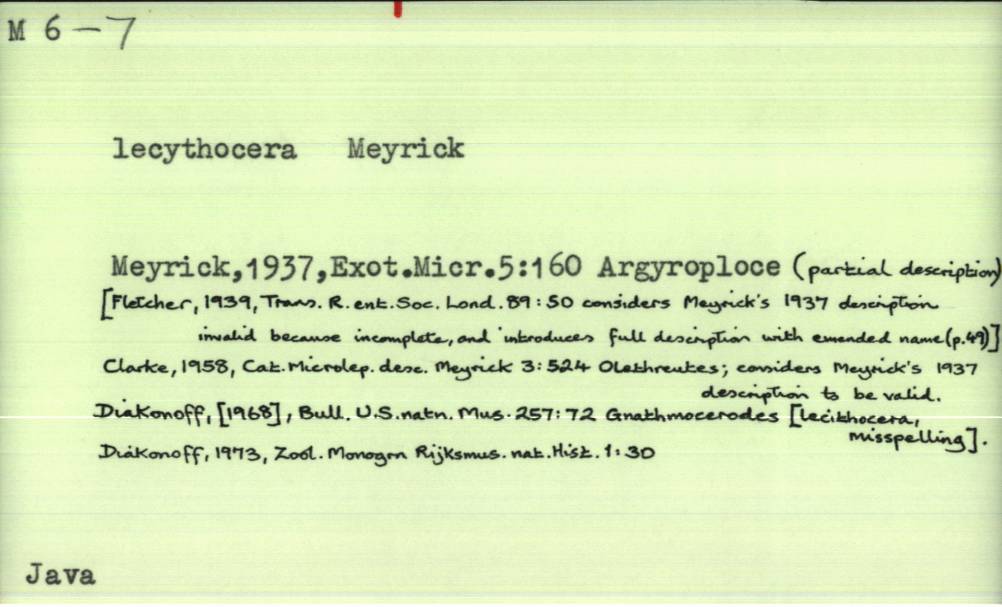 M 6-7
lecythocera Meyrick
Meyrick,1937,Exot.Micr.5:160 Argyroploce (partial description)
[Fletcher, 1939, Trans. R. ent. Soc. Lond. 89:50 considers Meyrick's 1937 description
invalid because incomplete, and introduces full description with emended name (p.49)]
Clarke, 1958, Cat. Microlep. desc. Meyrick 3:524 Olethreutes; considers Meyrick's 1937
description to be valid.
Diakonoff, [1968], Bull. U.S. natn. Mus. 257:72 Gnathmocerodes [lecithocera,
misspelling].
Diakonoff, 1973, Zool. Monogrn Rijksmus. nat. Hist. 1:30
Java